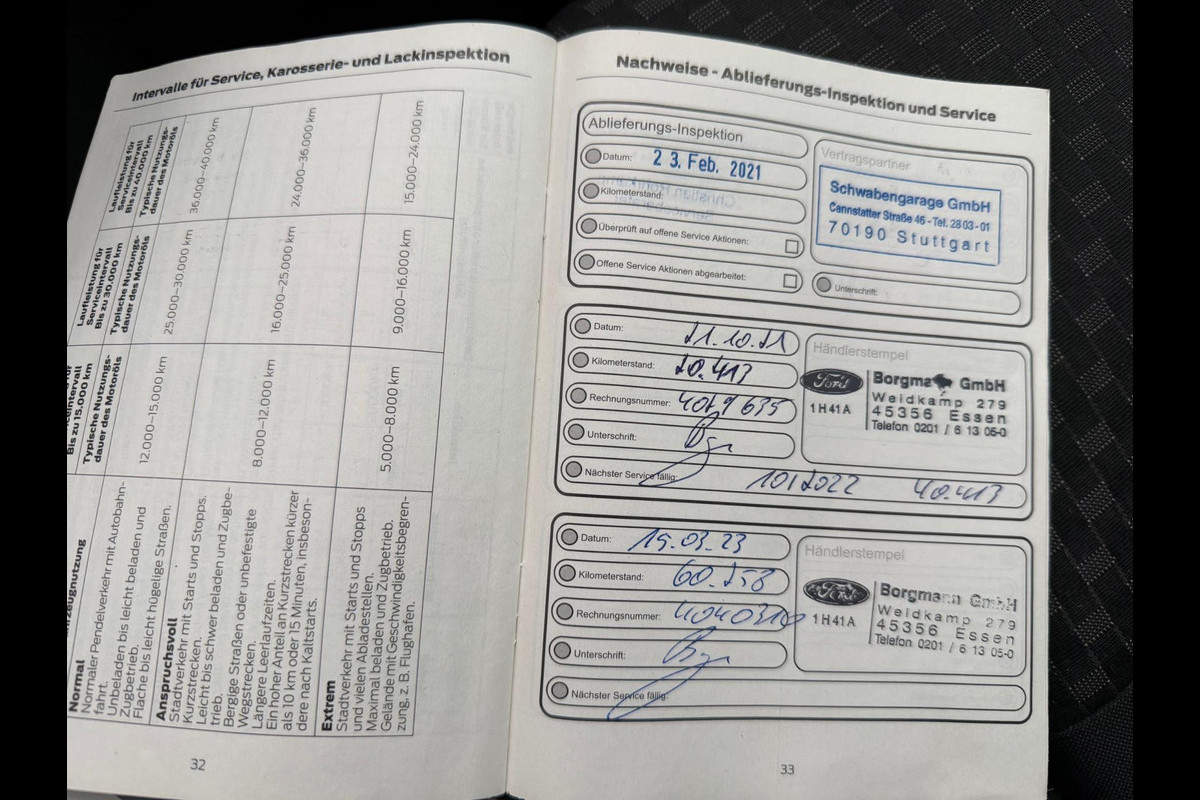 Intervalle für Service, Karosserie- und Lackinspektion
Laufleistung für Serviceintervall Bis zu 40.000 km
Typische Nutzungs-
dauer des Motoröls
36.000–40.000 km
24.000–36.000 km
15.000–24.000 km
Laufleistung für Serviceintervall Bis zu 30.000 km
Typische Nutzungs-
dauer des Motoröls
25.000–30.000 km
16.000–25.000 km
9.000–16.000 km
Bis zu 15.000 km
Typische Nutzungs-
dauer des Motoröls
12.000–15.000 km
8.000–12.000 km
5.000–8.000 km
Normal
Normaler Pendelverkehr mit Autobahn-
fahrt.
Unbeladen bis leicht beladen und
Zugbetrieb.
Flache bis leicht hügelige Straßen.
Anspruchsvoll
Stadtverkehr mit Starts und Stopps.
Kurzstrecken.
Leicht bis schwer beladen und Zugbe-
trieb.
Bergige Straßen oder unbefestigte
Wegstrecken.
Längere Leerlaufzeiten.
Ein hoher Anteil an Kurzstrecken kürzer
als 10 km oder 15 Minuten, insbeson-
dere nach Kaltstarts.
Extrem
Stadtverkehr mit Starts und Stopps
und vielen Abladestellen.
Maximal beladen und Zugbetrieb.
Gelände mit Geschwindigkeitsbegren-
zung, z. B. Flughafen.
32
Nachweise - Ablieferungs-Inspektion und Service
Ablieferungs-Inspektion
Datum: 23. Feb. 2021
Kilometerstand:
Überprüft auf offene Service Aktionen:
Offene Service Aktionen abgearbeitet:
Vertragspartner
Schwabengarage GmbH
Cannstatter Straße 46 - Tel. 28 03 - 01
70190 Stuttgart
Unterschrift:
Datum: 21.10.21
Kilometerstand: 20.413
Rechnungsnummer:
Unterschrift:
Nächster Service fällig: 10/2022 40.413
Händlerstempel
Ford
1H41A
Borgmann GmbH
Weidkamp 279
45356 Essen
Telefon 0201 / 6 13 05-0
Datum: 15.03.23
Kilometerstand: 60.258
Rechnungsnummer:
Unterschrift:
Nächster Service fällig:
Händlerstempel
Ford
1H41A
Borgmann GmbH
Weidkamp 279
45356 Essen
Telefon 0201 / 6 13 05-0
33